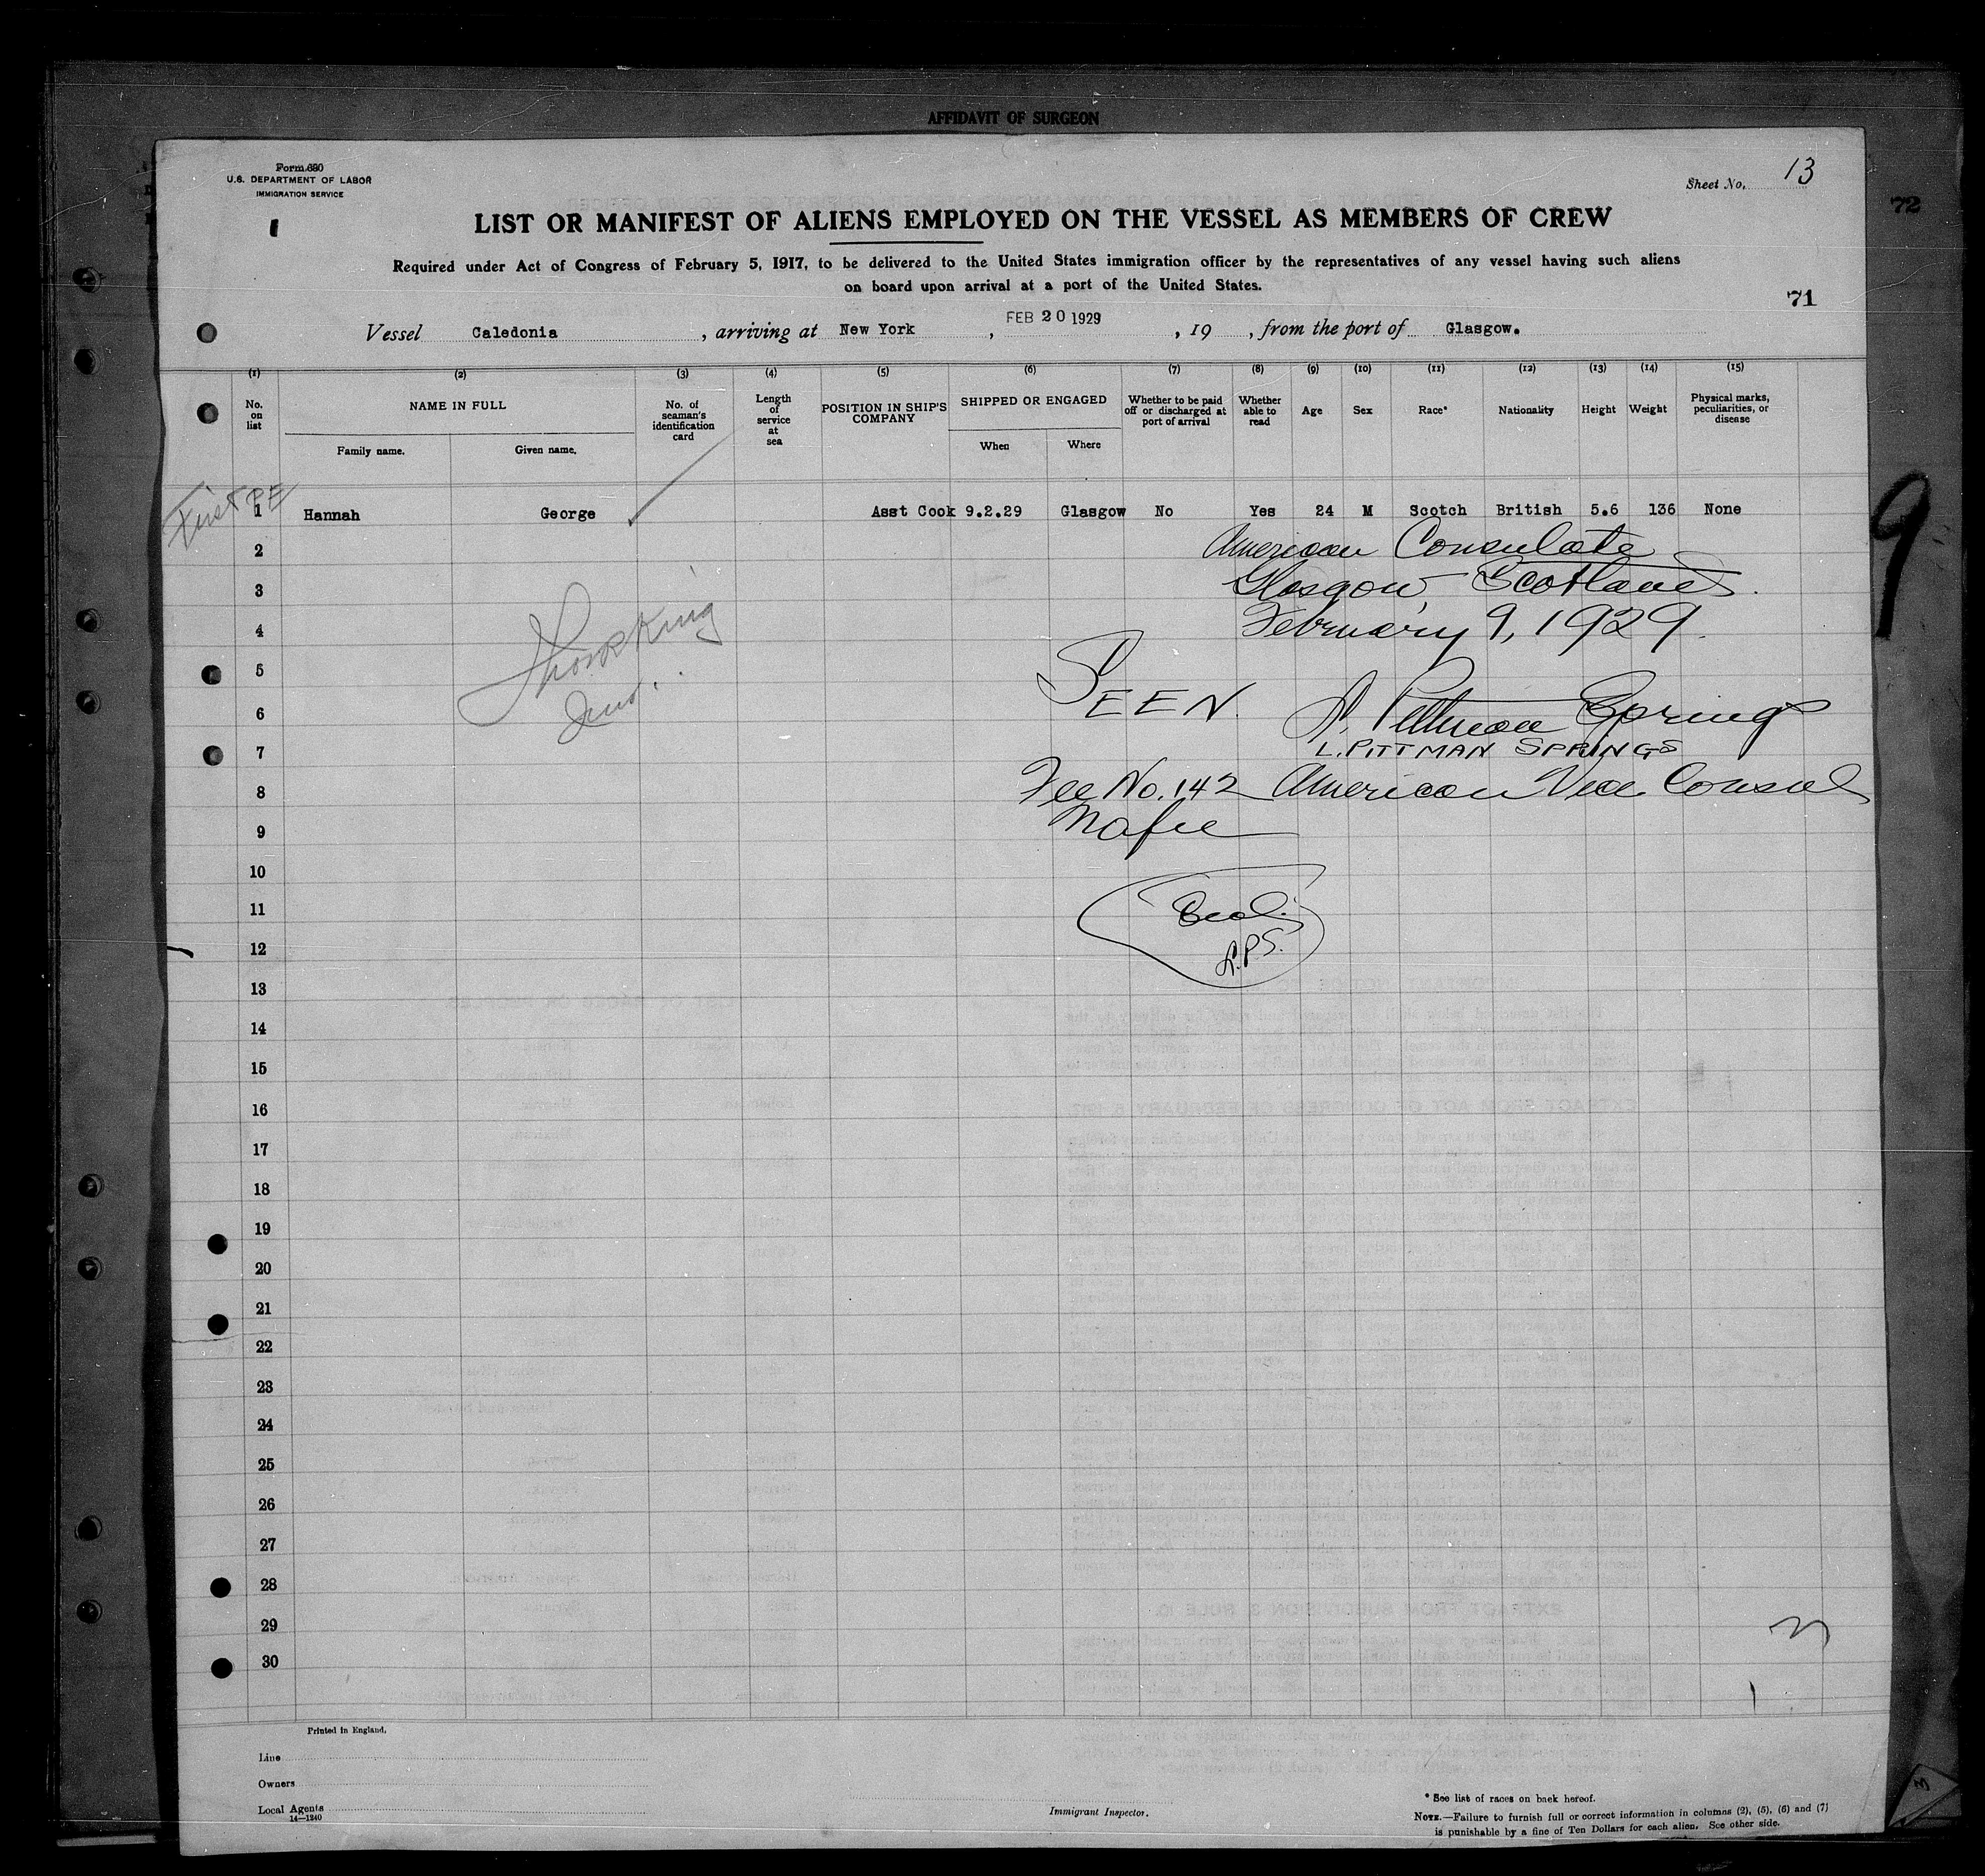 AFFIDAVIT OF SURGEON
Form 680
U.S. DEPARTMENT OF LABOR
IMMIGRATION SERVICE
Sheet No. 13
72
LIST OR MANIFEST OF ALIENS EMPLOYED ON THE VESSEL AS MEMBERS OF CREW
Required under Act of Congress of February 5, 1917, to be delivered to the United States immigration officer by the representatives of any vessel having such aliens
on board upon arrival at a port of the United States.
71
Vessel Caledonia, arriving at New York, FEB 20 1929, 19 , from the port of Glasgow.
(1) (2) (3) (4) (5) (6) (7) (8) (9) (10) (11) (12) (13) (14) (15)
No. on list
NAME IN FULL
Family name. Given name.
No. of seaman's identification card
Length of service at sea
POSITION IN SHIP'S COMPANY
SHIPPED OR ENGAGED
When Where
Whether to be paid off or discharged at port of arrival
Whether able to read
Age
Sex
Race*
Nationality
Height
Weight
Physical marks, peculiarities, or disease
First PE
1 Hannah George Asst Cook 9.2.29 Glasgow No Yes 24 M Scotch British 5.6 136 None
9
2 American Consulate
3 Glasgow, Scotland.
4 February 9, 1929.
5
6 SEEN. L. Pittman Springs
7 L. PITTMAN SPRINGS
8 Fee No. 142 American Vice Consul
9 Nofee
10
11 Seal.
12 L.P.S.
13
14
15
16
17
18
19
20
21
22
23
24
25
26
27
28
29
30
Printed in England.
Line
Owners
Local Agents
14—1240
Immigrant Inspector.
* See list of races on back hereof.
NOTE.—Failure to furnish full or correct information in columns (2), (5), (6) and (7)
is punishable by a fine of Ten Dollars for each alien. See other side.